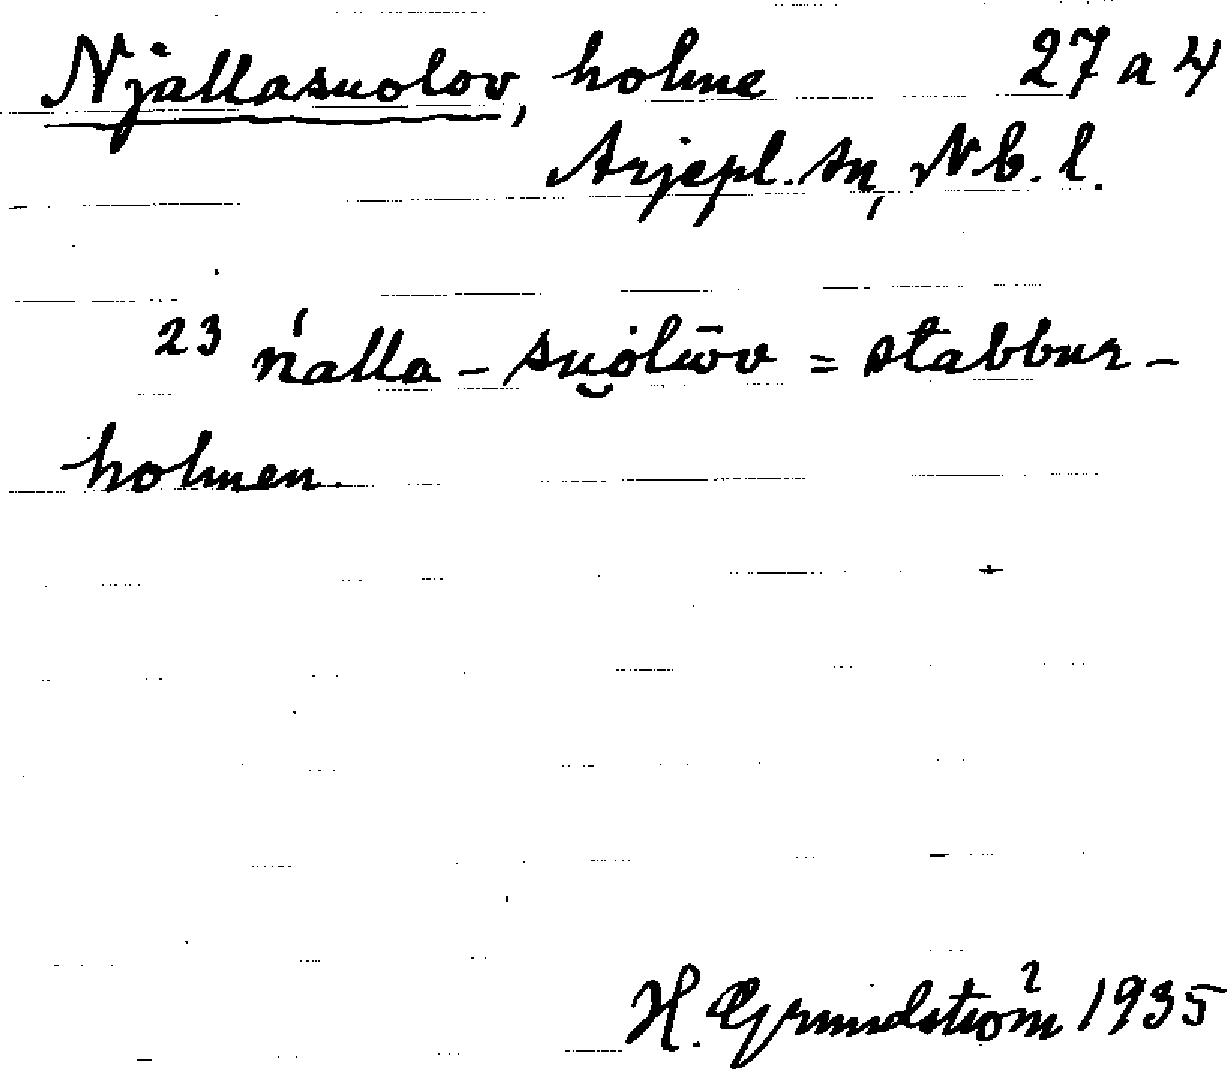 Njallasuolov, holme 27 a 4
Arjepl. sn, Nb. l.
23 ńalla - su̯olu̇̄v = stabbur-
holmen.
H. Grundström 1935